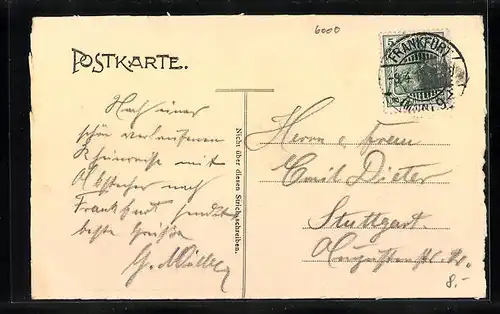 6000
POSTKARTE.
5
FRANKFURT
(MAIN) 9
Nach einer
schön verlaufenen
Rheinreise mit
Abstecher nach
Frankfurt sendet
beste Grüße
G. Müller
Nicht über diesen Strich schreiben.
Herrn u Frau
Emil Dieter
Stuttgart.
Augustenstr.
8.-